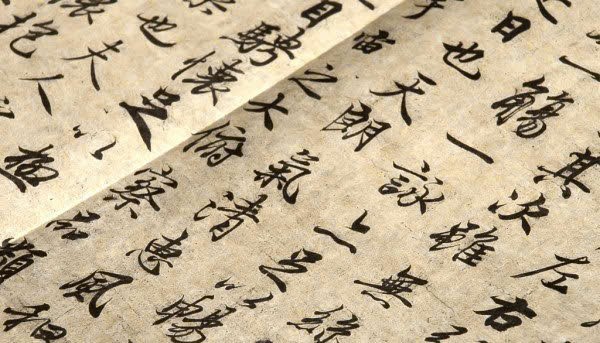 左右
其次雖無絲
觴一詠亦足以暢
日也天朗氣清惠風和
宙之大俯察品類
目騁懷足以極
也夫人
懷抱